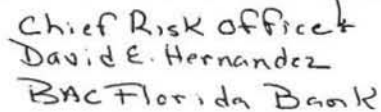 Chief Risk Officer
David E. Hernandez
BAC Florida Bank